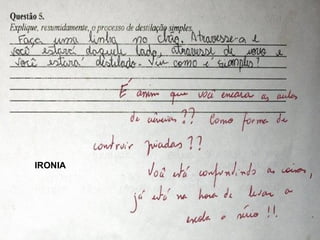 Questão 5.
Explique, resumidamente, o processo de destilação simples.
Faça uma linha no chão. Atravesse-a e
você estará daquele lado, atravesse de novo e
você estará destilado. Viu como é simples?
É assim que você encara as aulas
de ciências?? Como forma de
construir piadas??
IRONIA
Você está confundindo as coisas,
já está na hora de levar a
escola a sério!!